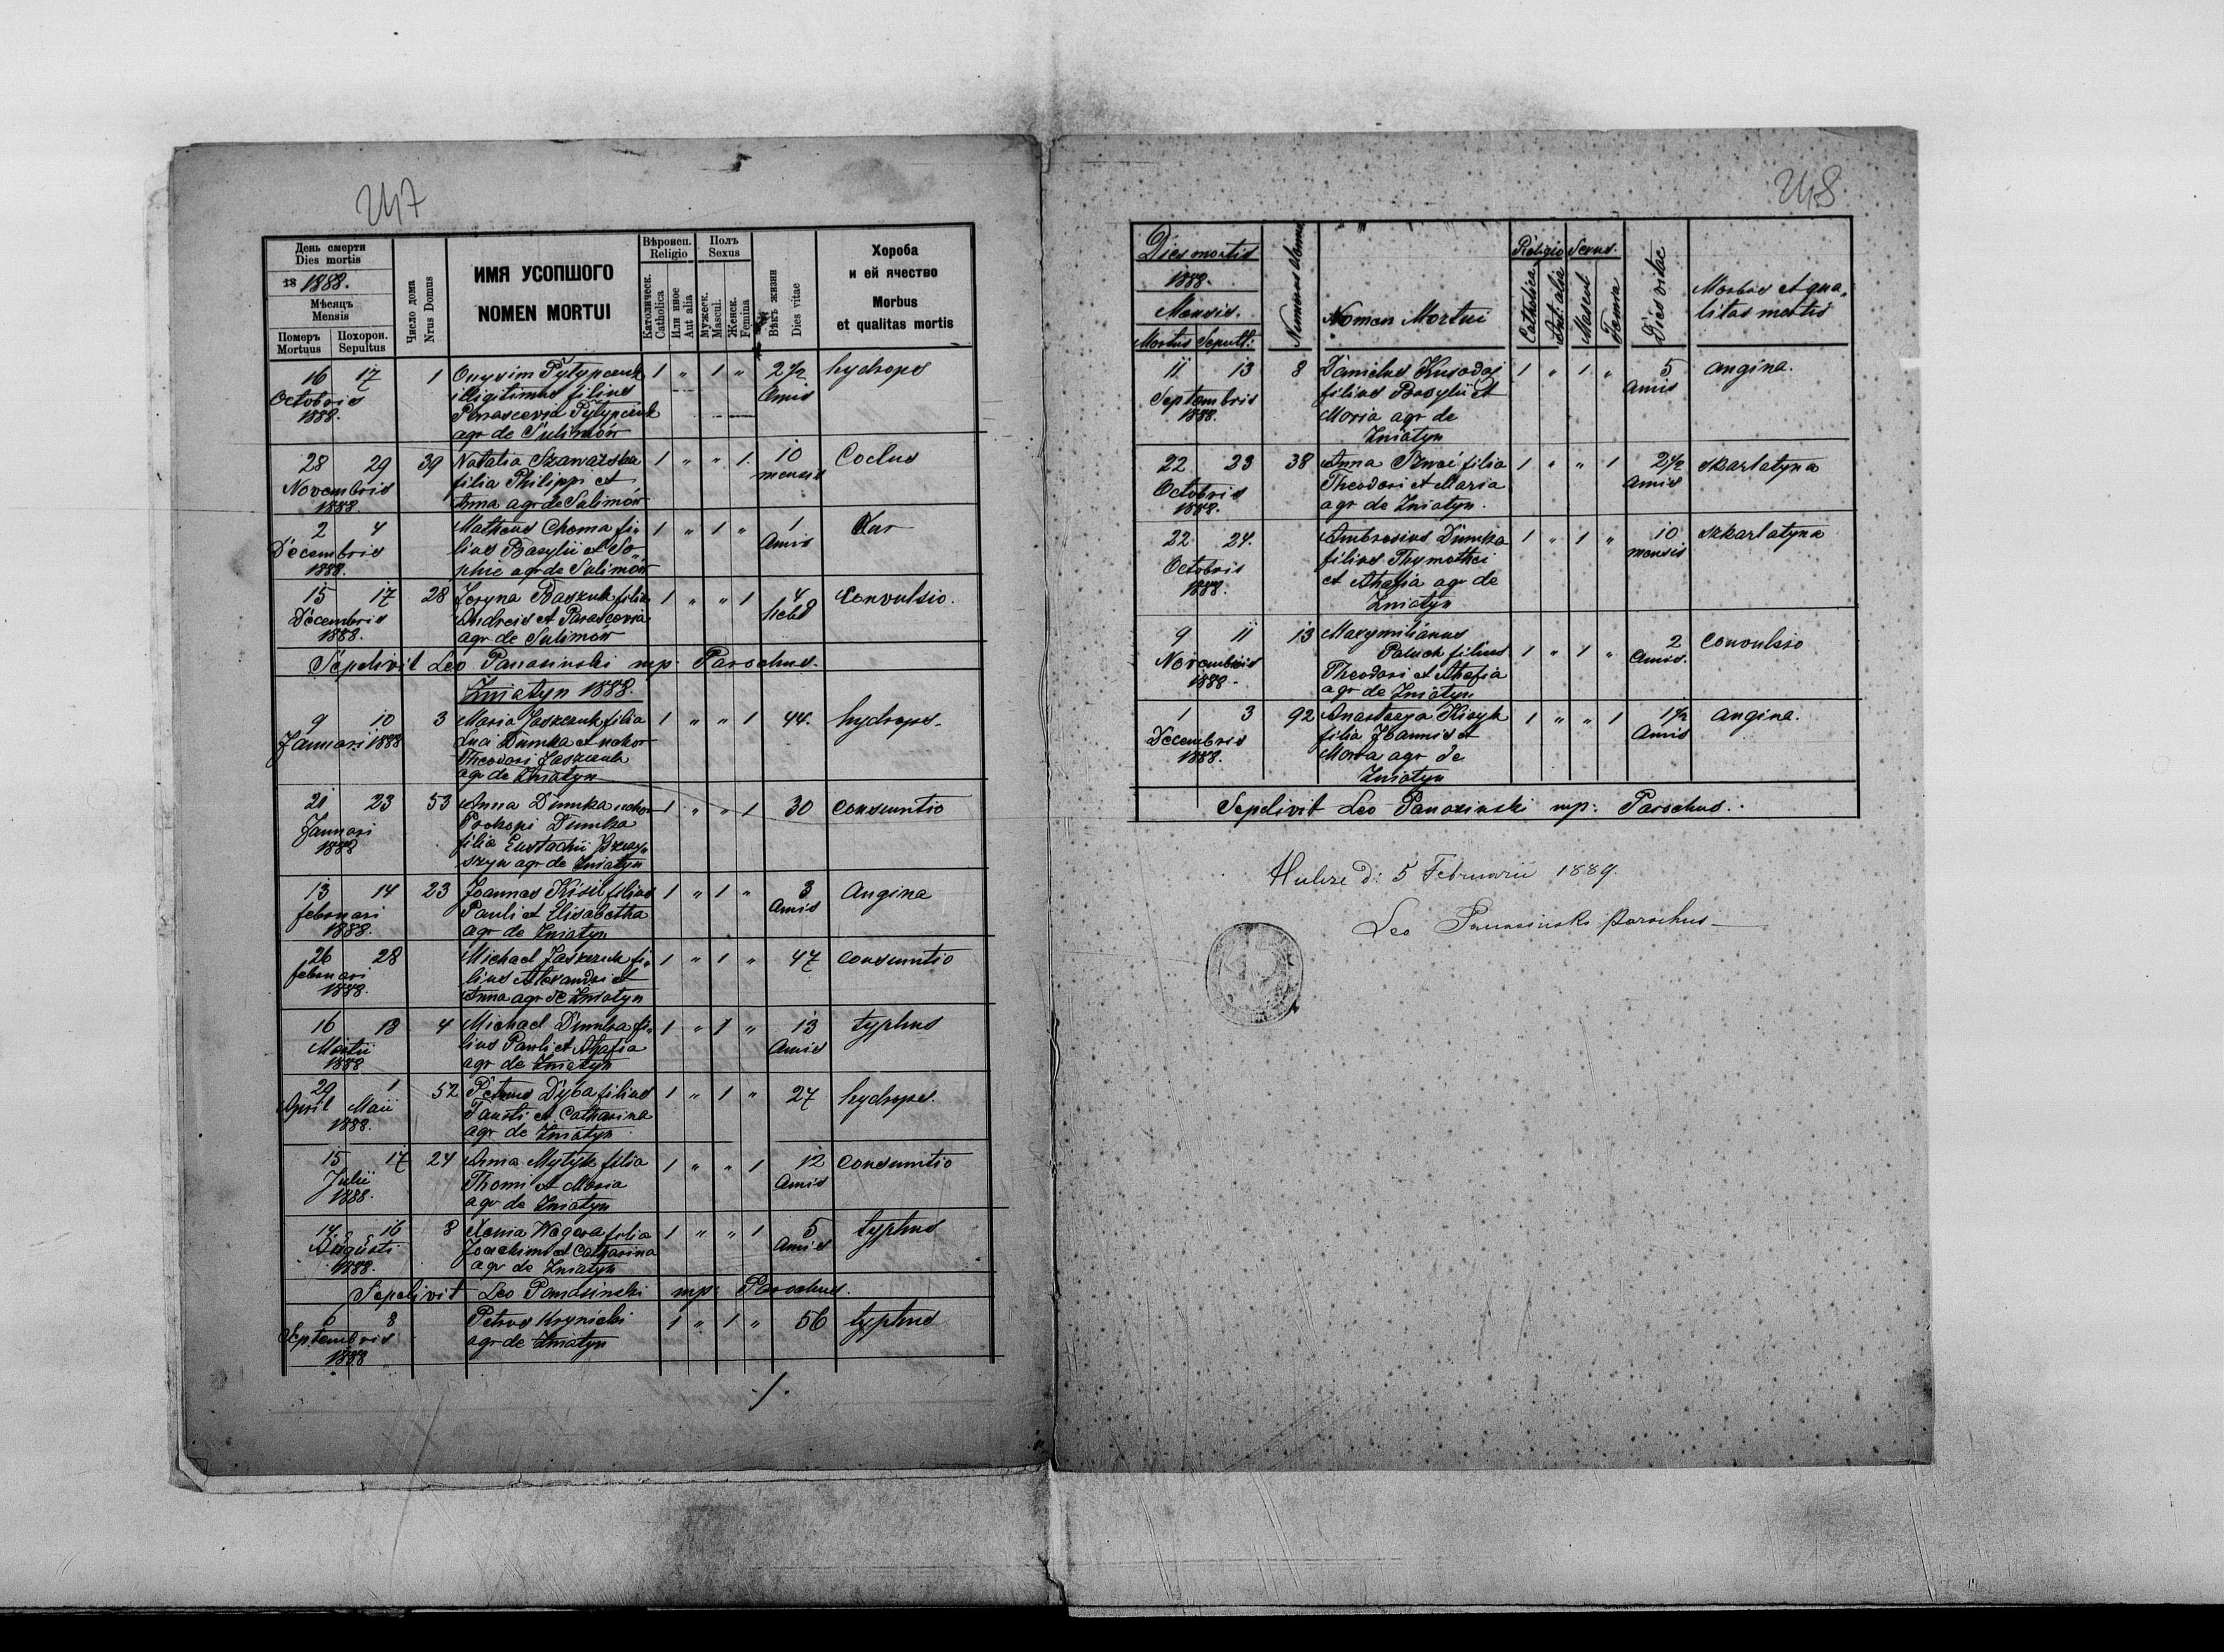 247
День смерти
Dies mortis
18 1888.
Мѣсяцъ
Mensis
Померъ
Mortuus
Похорон.
Sepultus
Число дома
Nrus Domus
ИМЯ УСОПШОГО
NOMEN MORTUI
Вѣроисп.
Religio
Католическ.
Catholica
Или иное
Aut alia
Полъ
Sexus
Мужеск.
Mascul.
Женск.
Femina
Вѣкъ жизни
Dies vitae
Хороба
и ей ячество
Morbus
et qualitas mortis
16 17 1 Onysim Pylypczuk 1 " 1 " 2 1/2 hydrops
Octobris illigitimus filius Annis
1888. Parascevia Pylypczuk
agr de Sulimów
28 29 39 Natalia Szawarska 1 " " 1. 10 Coclus
Novembris filia Philippi et mensis
1888. Anna agr de Sulimów
2 4 Matheus Choma fi- 1 " 1 " 1
Decembris lius Basylii et So- Annis
1888. phie agr de Sulimów
15 17 28 Baszuk filia 1 " " 1 4 Convulsio.
Decembris Andreis et Parascevia hebd
1888. agr de Sulimów
Sepelivit Leo Panasinski mp. Parochus.
Zniatyn 1888.
9 10 3 Maria Jaszczuk filia 1 " " 1 44. hydrops.
Januari 1888 Luci Dumka et uxor
Theodori Jaszczuk
agr de Zniatyn
21 23 53 Anna Dumka uxor 1 " " 1 30 consumtio
Januari Prokopi Dumka
1888 filia Eustachii
agr de Zniatyn
13 14 23 Joannes Kisil filius 1 " 1 " 3 Angina
februari Pauli et Elisabetha Annis
1888. agr de Zniatyn
26 28 Michael Jaszczuk fi- 1 " 1 " 47 consumtio
februari lius Alexandri et
1888. Anna agr de Zniatyn
16 18 4 Michael Dumka fi- 1 " 1 " 13 typhus
Martii lius Pauli et Ahafia Annis
1888 agr de Zniatyn
29 1 52 Petrus Dyba filius 1 " 1 " 27 hydrops.
April Maii Fausti et Catharina
1888. agr de Zniatyn
15 17 24 Anna Mytyk filia 1 " " 1 12 consumtio
Julii Thomi et Maria Annis
1888. agr de Zniatyn
14 16 8 Xenia Wagera filia 1 " " 1 5 typhus
Augusti Joachimi et Catharina Annis
1888. agr de Zniatyn
Sepelivit Leo Panasinski mp. Parochus.
6 8 Petrus Krynicki 1 " 1 " 56 typhus
Septembris agr de Zniatyn
1888
248
Dies mortis
1888.
Mensis.
Mortus Sepult:
Numerus domus
Nomen Mortui
Religio
Catholica
Aut. alia
Sexus.
Mascul
Femina
Dies vitae
Morbus et qua-
litas mortis
11 13 8 Danielus Kusodoj 1 " 1 " 5 angina.
Septembris filius Basylii et Annis
1888. Maria agr de
Zniatyn
22 23 38 Anna filia 1 " " 1 2 1/2 skarlatyna
Octobris Theodori et Maria Annis
1888. agr de Zniatyn.
22 24. Ambrosius Dumka 1 " 1 " 10 szkarlatyna
Octobris filius Thymothei mensis
1888. et Ahafia agr de
Zniatyn
9 11 13 Maxymilianus
Paluch filius 1 " 1 " 2 convulsio
Novembris Theodori et Ahafia Annis.
1888. agr de Zniatyn
1 3 92 Anastazya Kisyk 1 " " 1 1 1/2 angina.
Decembris filia Joannis et Annis
1888. Maria agr de
Zniatyn
Sepelivit Leo Panasinski mp: Parochus.
Hulcze d: 5 Februarii 1889.
Leo Panasinski parochus